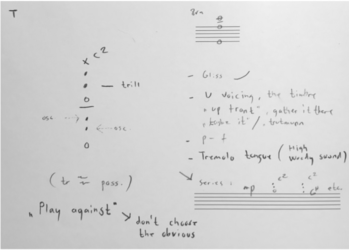 T
x c²
trill
osc
osc
( tr ≈ poss. )
„ Play against "
don't choose
the obvious
- Gliss
- U voicing, the timbre
" up front ", gather it there
- p - f
- Tremolo tongue ( High
woody sound )
series : mp c² c² etc.